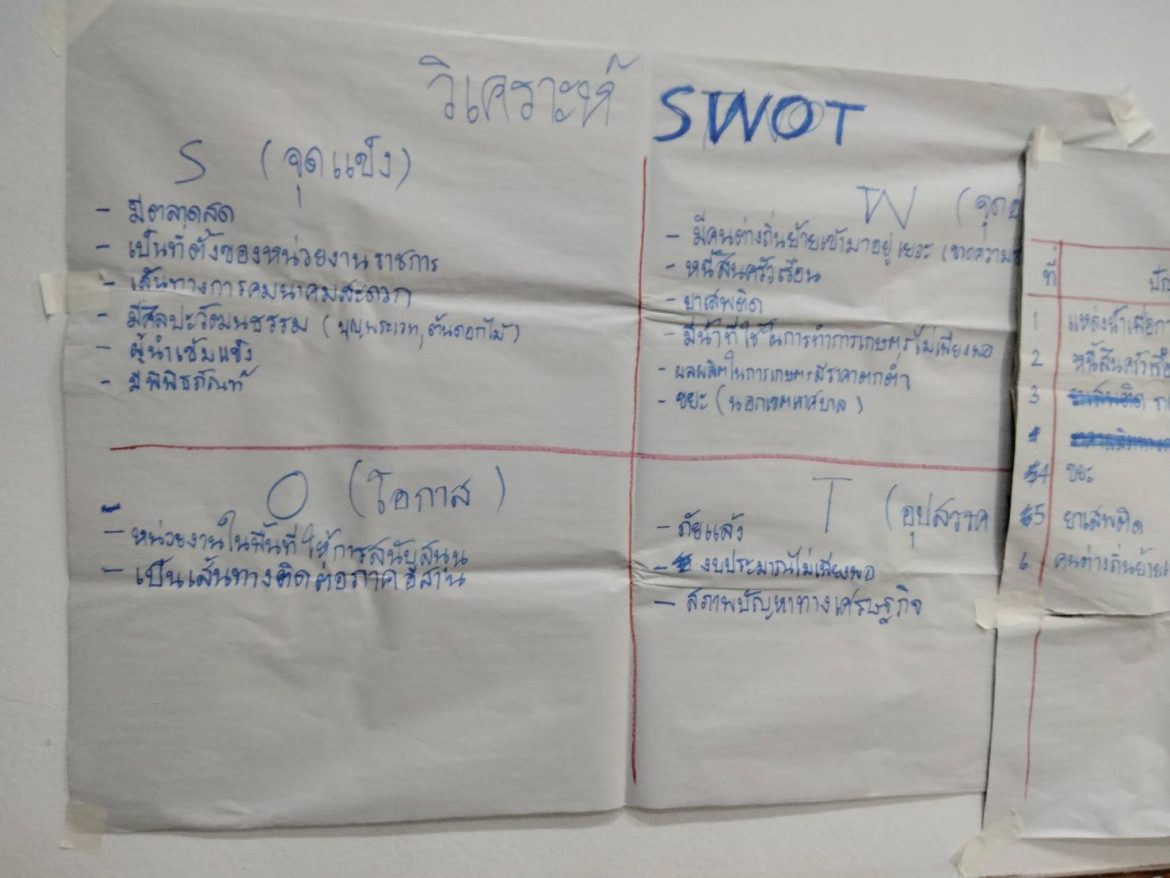 วิเคราะห์ SWOT
S (จุดแข็ง)
- มีตลาดสด
- เป็นที่ตั้งของหน่วยงานราชการ
- เส้นทางการคมนาคมสะดวก
- มีศิลปะวัฒนธรรม (บุญพระเวท, ต้นดอกไม้)
- ผู้นำเข้มแข็ง
- มีพิพิธภัณฑ์
W (จุดอ
- มีคนต่างถิ่นย้ายเข้ามาอยู่เยอะ (ขาดความ
- หนี้สินครัวเรือน
- ยาเสพติด
- มีน้ำที่ใช้ในการทำการเกษตรไม่เพียงพอ
- ผลผลิตในการเกษตรมีราคาตกต่ำ
- ขยะ (นอกเขตเทศบาล)
O (โอกาส)
- หน่วยงานในพื้นที่ให้การสนับสนุน
- เป็นเส้นทางติดต่อภาคอีสาน
T (อุปสรรค
- ภัยแล้ง
- งบประมาณไม่เพียงพอ
- สภาพปัญหาทางเศรษฐกิจ
ที่ ปัญ
1 แหล่งน้ำเพื่อก
2 หนี้สินครัวเรือ
3
4 ขยะ
5 ยาเสพติด
6. คนต่างถิ่นย้ายเ